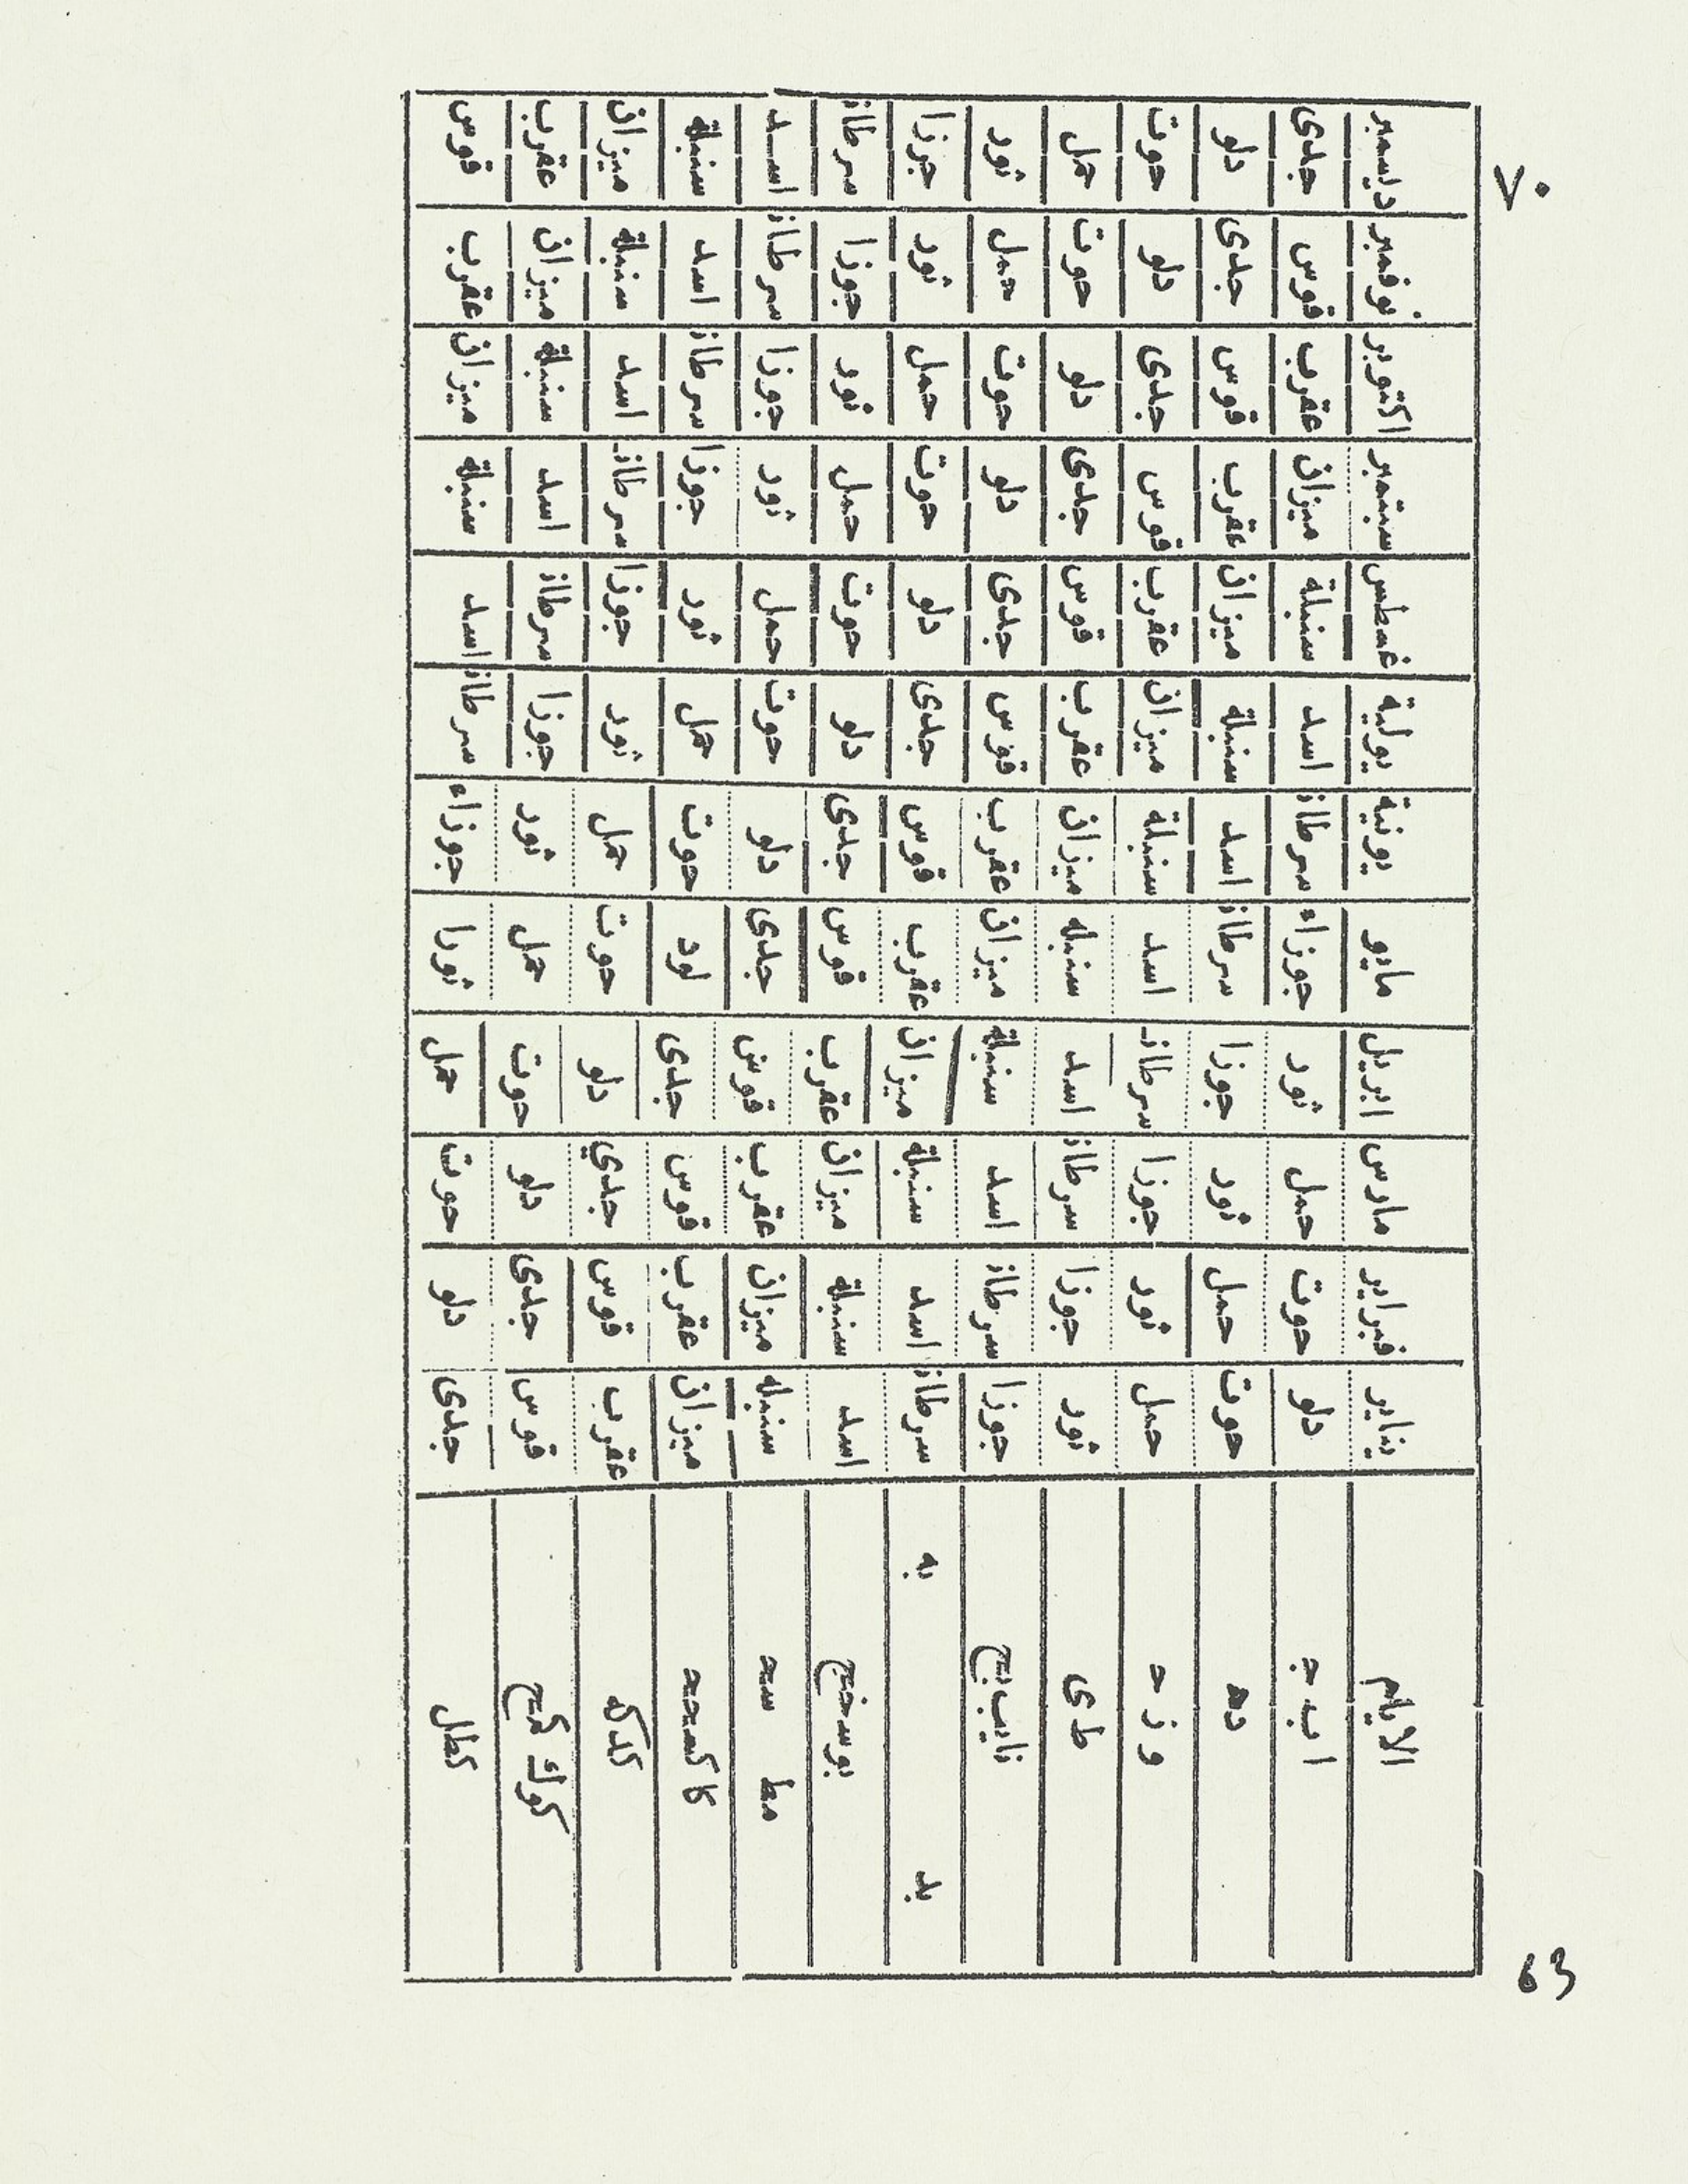 ٧٠
الايام يناير فبراير مارس ابريل مايو يونية يولية غسطس سبتمبر اكتوبر نوفمبر ديسمبر
اب ج دلو حوت حمل ثور جوزاء سرطان اسد سنبلة ميزان عقرب قوس جدى
ده حوت حمل ثور جوزا سرطان اسد سنبلة ميزان عقرب قوس جدى دلو
و ز ح حمل ثور جوزا سرطان اسد سنبلة ميزان عقرب قوس جدى دلو حوت
ط ى ثور جوزا سرطان اسد سنبله ميزان عقرب قوس جدى دلو حوت حمل
جوزا سرطان اسد سنبلة ميزان عقرب قوس جدى دلو حوت حمل ثور
يد يه سرطان اسد سنبلة ميزان عقرب قوس جدى دلو حوت حمل ثور جوزا
اسد سنبلة ميزان عقرب قوس جدى دلو حوت حمل ثور جوزا سرطان
سنبله ميزان عقرب قوس جدى دلو حوت حمل ثور جوزا سرطان اسد
ميزان عقرب قوس جدى لود حوت حمل ثور جوزا سرطان اسد سنبلة
كدكه عقرب قوس جدي دلو حوت حمل ثور جوزا سرطان اسد سنبلة ميزان
قوس جدى دلو حوت حمل ثور جوزا سرطان اسد سنبلة ميزان عقرب
كطل جدى دلو حوت حمل ثورا جوزاء سرطان اسد سنبلة ميزان عقرب قوس
63